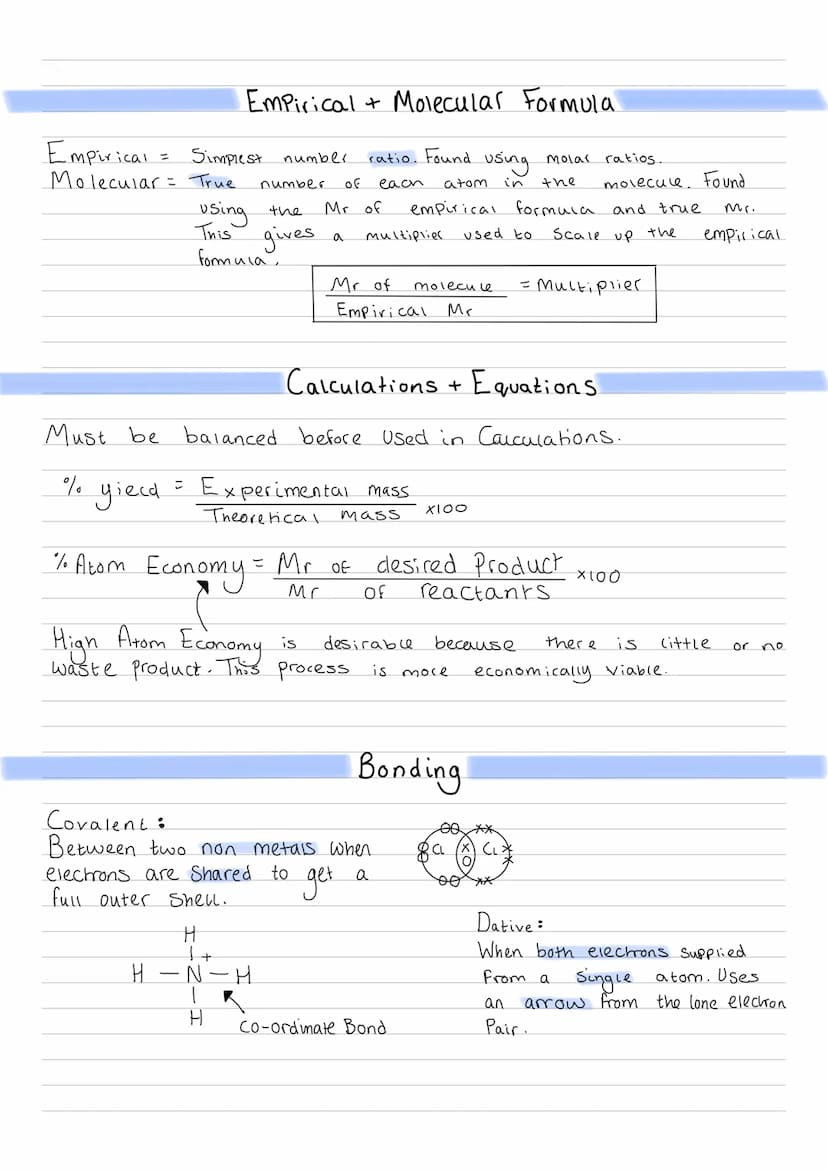 Empirical + Molecular Formula
Empirical = Simplest number ratio. Found using molar ratios.
Molecular = True number of each atom in the molecule. Found
using the Mr of empirical formula and true Mr.
This gives a multiplier used to scale up the empirical
formula.
Mr of molecule = Multiplier
Empirical Mr
Calculations + Equations
Must be balanced before used in Calculations.
% yield = Experimental mass
Theoretical mass ×100
% Atom Economy = Mr of desired Product ×100
Mr of reactants
High Atom Economy is desirable because there is little or no
waste product. This process is more economically viable.
Bonding
Covalent:
Between two non metals when
electrons are shared to get a
full outer shell.
Cl Cl
H
+
H — N — H
H
Co-ordinate Bond
Dative:
When both electrons supplied
from a single atom. Uses
an arrow from the lone electron
Pair.